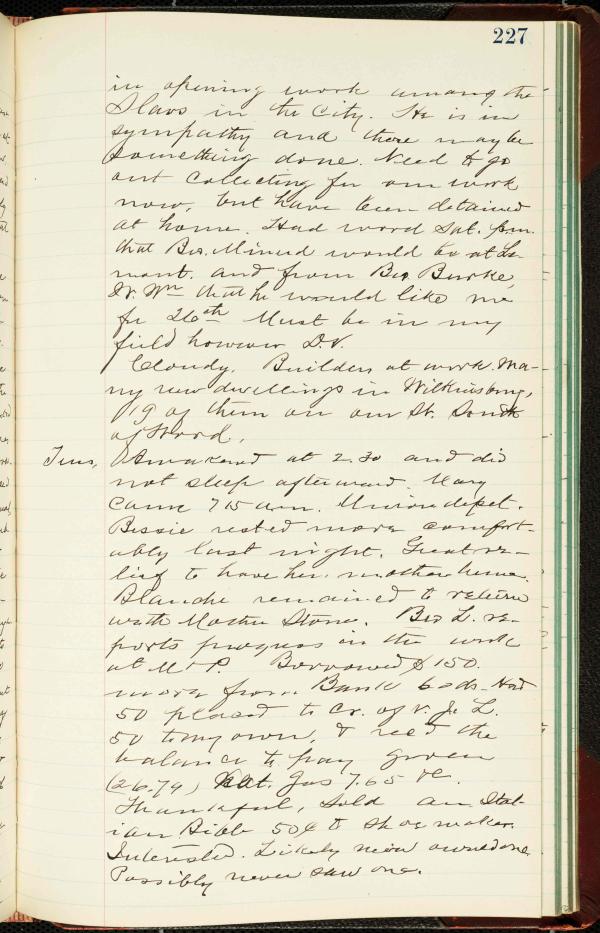 227
in opening work among the
Slavs in the City. He is in
sympathy and there may be
something done. Need to go
out collecting for our work
now, but have been detained
at home. Had word Sat. p.m.
that Bro. Minerd would be at La-
mont. and from Bro Burke,
Dr. Wm that he would like me
for 26th Must be in my
field however D.V.
Cloudy. Builders at work. Ma-
ny new dwellings in Wilkinsburg,
19 of them on our St. South
of Wood.
Tues, Awakened at 2.30 and did
not sleep afterward. Mary
came 7 15 a.m. Union depot.
Bessie rested more comfort-
ably last night. Great re-
lief to have her mother home.
Blanche remained to return
with Mother Stone. Bro L. re-
ports progress in the work
at McP. Borrowed $150.
more from Bank 60 ds. Had
50 placed to Cr. of V. Je L.
50 to my own, & recd the
balance to pay grocer
(26.79) Nat. Gas 7.65 &c.
Thankful, Sold an Ital-
ian Bible 50¢ to Shoemaker.
Interested. Likely never owned one
Possibly never saw one.